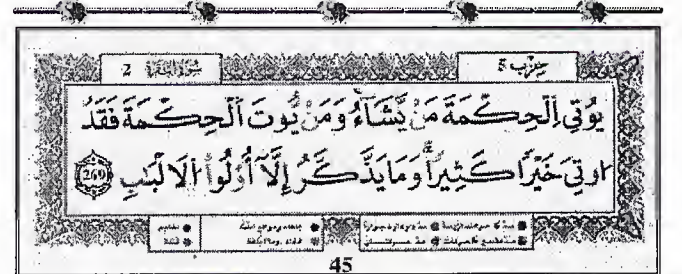 حزب 5
سورة البقرة 2
يُوتِي اِلْحِكْمَةَ مَنْ يَّشَآءُ وَمَنْ يُّوتَ اَلْحِكْمَةَ فَقَدُ
اوتِيَ خَيْرًا كَثِيرًا وَمَا يَذَّكَّرُ إِلَّآ أُوْلُواْ اَلَالْبَٰبِ 269
45